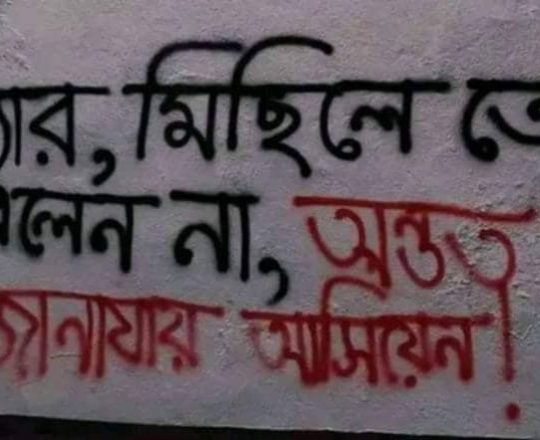 ার, মিছিলে তো
এলেন না, অন্তত
জানাযায় আসিয়েন!